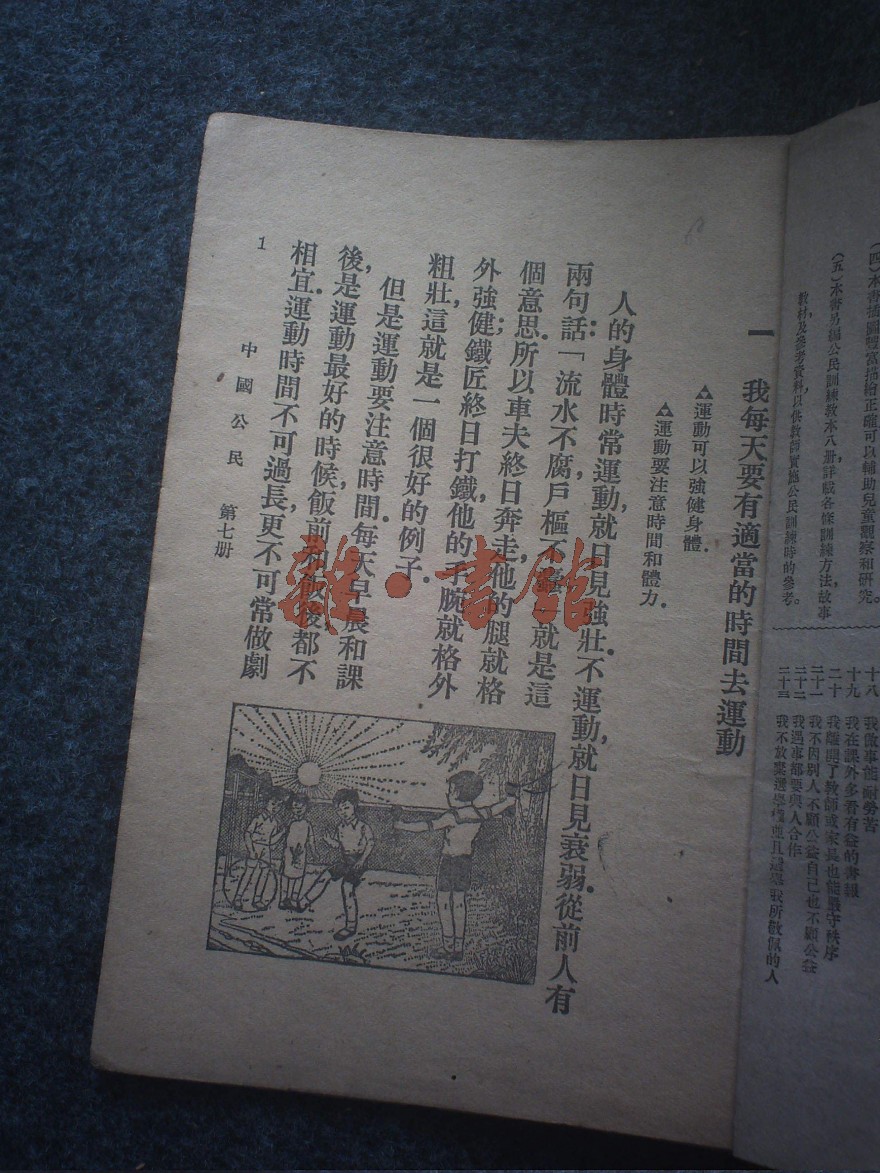 (四)本書插圖豐富描繪正確可以輔助兒童觀察和研究。
(五)本書另編公民訓練教本八册詳載各條訓練方法故事
教材及參考資料,以供教師實施公民訓練時的參考。
十八 我做事能耐勞苦
十九 我在課外多看有益的書報
二十 我離開了教師或家長也能嚴守秩序
二十一 我不因別人不顧公益自己也不顧公益
二十二 我遇事都要與人合作
二十三 我不放棄選舉權並且選舉我所敬佩的人
一 我每天要有適當的時間去運動
運動可以強健身體.
運動要注意時間和體力.
人的身體時常運動,就日見強壯.不運動,就日見衰弱.從前人有
兩句話:「流水不腐戶樞不蠹」就是這
個意思.所以車夫終日奔走,他的腿就格
外強健;鐵匠終日打鐵,他的手腕就格外
粗壯,這就是一個很好的例子.
但是運動要注意時間.每天早晨和課
後,是運動最好的時候,飯前和飯後都不
相宜.運動時間不可過長,更不可常做劇
1 中國公民 第七册
雜·書館